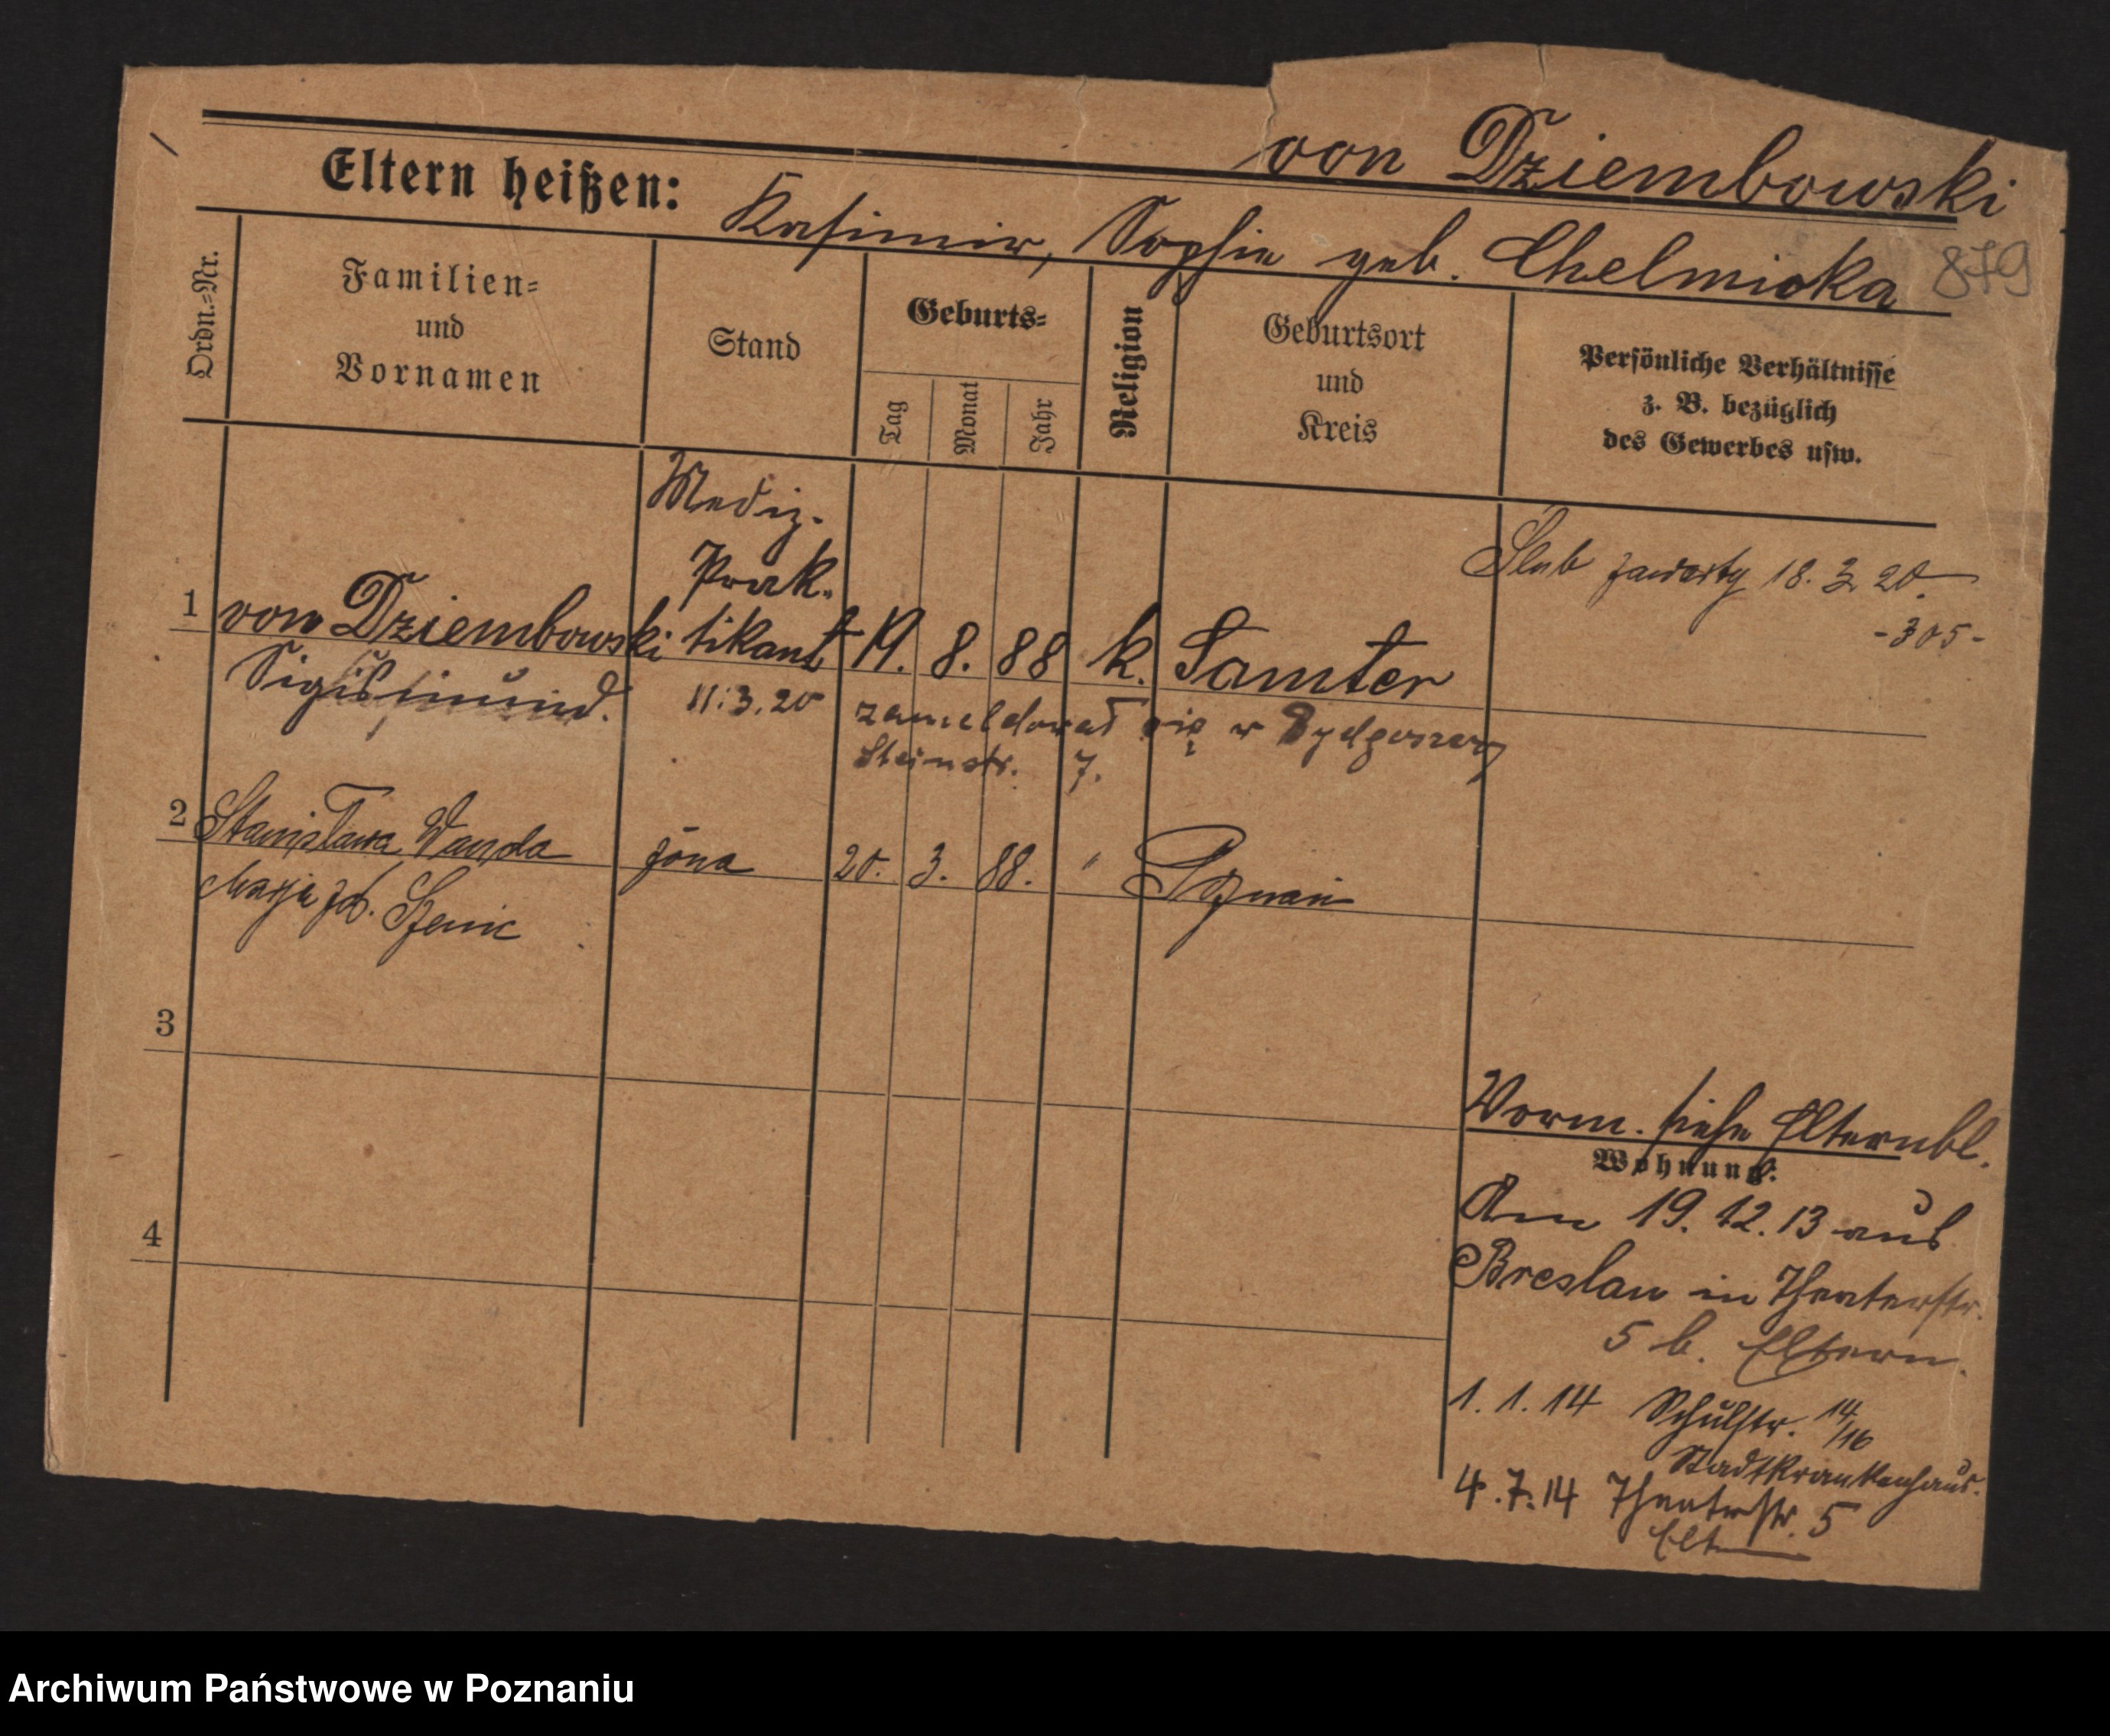 von Dziembowski
Eltern heißen: Kasimir, Sophie geb. Chelmicka
879
Ordn.-Nr.
Familien-
und
Vornamen
Stand
Geburts-
Tag
Monat
Jahr
Religion
Geburtsort
und
Kreis
Persönliche Verhältnisse
z. B. bezüglich
des Gewerbes usw.
Mediz.
Prak-
1 von Dziembowski tikant 19. 8. 88 k. Samter
Sigismund.
Ślub zawarty 18. 3. 20.
-305-
11.3.20 zameldował się w Bydgoszczy
Steinstr. 7.
2 Stanisława Wanda żona 20. 3. 88. " Poznań
Marja zd. Szenic
3
4
Vorm. siehe Elternbl.
Wohnung:
Am 19. 12. 13 aus
Breslau in Theaterstr.
5 b. Eltern.
1. 1. 14 Schulstr. 14/16
Stadtkrankenhaus.
4. 7. 14 Theaterstr. 5
Elt
Archiwum Państwowe w Poznaniu